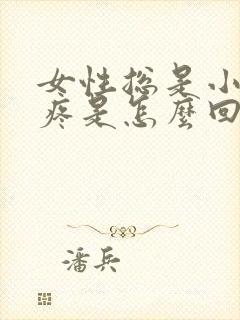 女性总是小
疼是怎麼回
潘兵